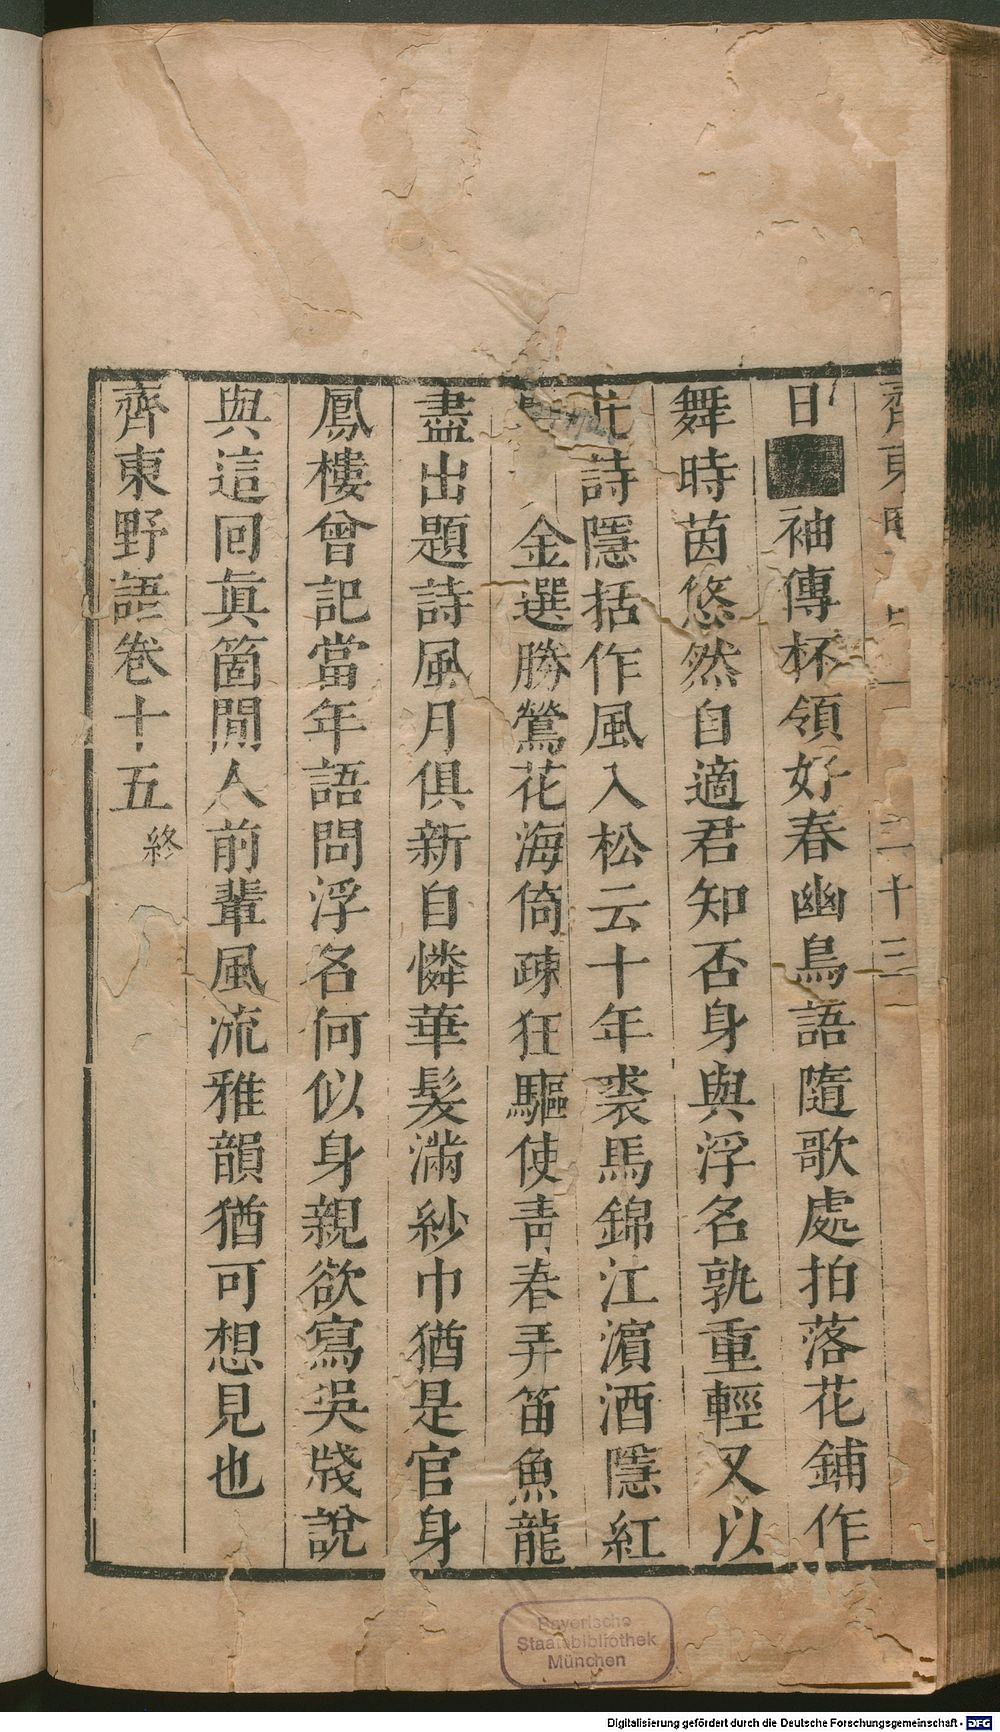 日 袖傳杯領好春幽鳥語隨歌處拍落花鋪作
舞時茵悠然自適君知否身與浮名孰重輕又以
詩隱括作風入松云十年裘馬錦江濵酒隱紅
金選勝鶯花海倚疎狂驅使青春弄笛魚龍
盡出題詩風月俱新自憐華髮滿紗巾猶是官身
鳳樓曾記當年語問浮名何似身親欲寫吳牋說
與這回眞箇閒人前輩風流雅韻猶可想見也
齊東野語卷十五終
二十三
Bayerische
Staatsbibliothek
München
Digitalisierung gefördert durch die Deutsche Forschungsgemeinschaft - DFG